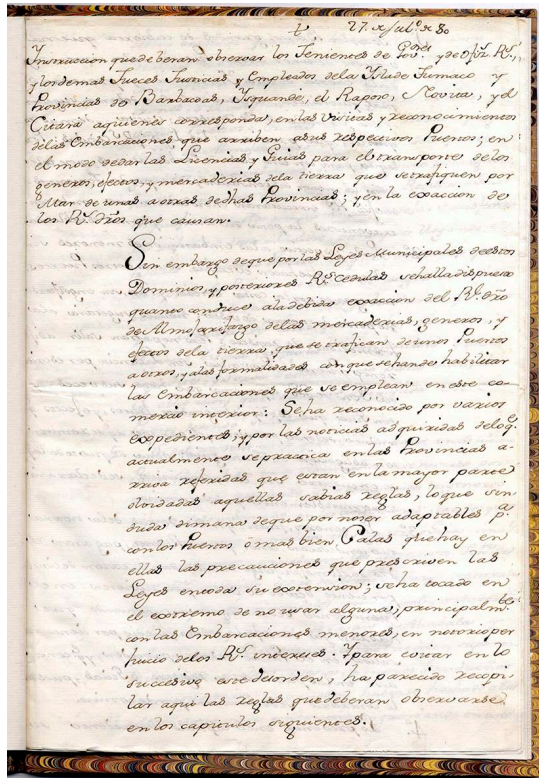 + 27. de Jul.º de 80
Instruccion que deberan observar los Tenientes de Gov.dores y de Ofiz. R.s,
y los demas Jueces Justicias y Empleados de la Ysla de Tumaco y
Provincias de Barbacoas, Ysquande, el Raposo, Novita, y el
Citará aquienes corresponda, en las Visitas y reconocimientos
de las Embarcaciones, que arriben a sus respectivos Puertos; en
el modo de dar las Licencias y Guias para el transporte de los
generos, efectos, y mercaderias de la tierra que se trafiquen por
Mar de unas a otras de dhas Provincias; y en la exaccion de
los R.s dros que causan.
Sin embargo de que por las Leyes Municipales de estos
Dominios, y posteriores R.s Cedulas se halla dispuesto
quanto conduce a la debida exaccion del R.l dro
de Almojarifazgo de las mercaderias, generos, y
efectos de la tierra que se trafican de unos Puertos
a otros, y a las formalidades con que se han de habilitar
las Embarcaciones que se emplean en este co-
mercio interior: Se ha reconocido por varios
expedientes, y por las noticias adquiridas de lo q.e
actualmente se practica en las Provincias a-
rriva referidas que estan en la mayor parte
olvidadas aquellas sabias reglas, lo que sin
duda dimana de que por no ser adaptables p.a
con los Puertos ó mas bien Calas que hay en
ellas las precauciones que prescriven las
Leyes en toda su extension; se ha tocado en
el extremo de no usar alguna, principalm.te
con las Embarcaciones menores, en notorio per-
huicio de los R.s intereses. Y para evitar en lo
succesivo este desorden, ha parecido recopi-
lar aqui las reglas que deberan observarse
en los capitulos siguientes.